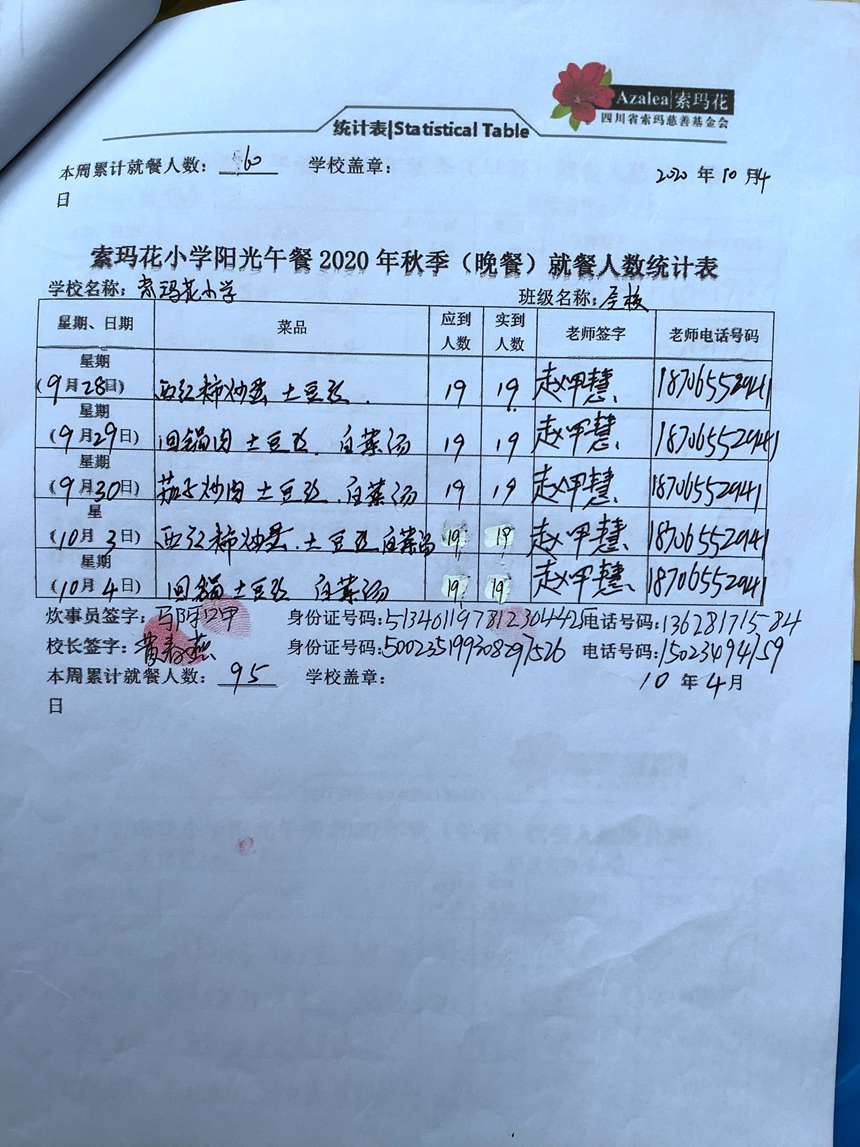 Azalea|索玛花
四川省索玛慈善基金会
统计表|Statistical Table
本周累计就餐人数: 60 学校盖章: 2020 年 10 月 4
日
索玛花小学阳光午餐 2020 年秋季（晚餐）就餐人数统计表
学校名称: 索玛花小学 班级名称: 全校
星期、日期 菜品 应到人数 实到人数 老师签字 老师电话号码
星期
(9月28日) 西红柿炒蛋 土豆丝. 19 19 赵甲慧 18706552941
星期
(9月29日) 回锅肉 土豆丝. 白菜汤 19 19 赵甲慧 18706552941
星期
(9月30日) 茄子炒肉 土豆丝. 白菜汤 19 19 赵甲慧 18706552941
星
(10月 3日) 西红柿炒蛋. 土豆丝 白菜汤 19 19 赵甲慧 18706552941
星期
(10月 4日) 回锅 土豆丝 白菜汤 19 19 赵甲慧 18706552941
炊事员签字: 身份证号码: 电话号码: 13628171584
校长签字: 身份证号码: 500235199308297526 电话号码: 15023494759
本周累计就餐人数: 95 学校盖章: 10 年 4 月
日